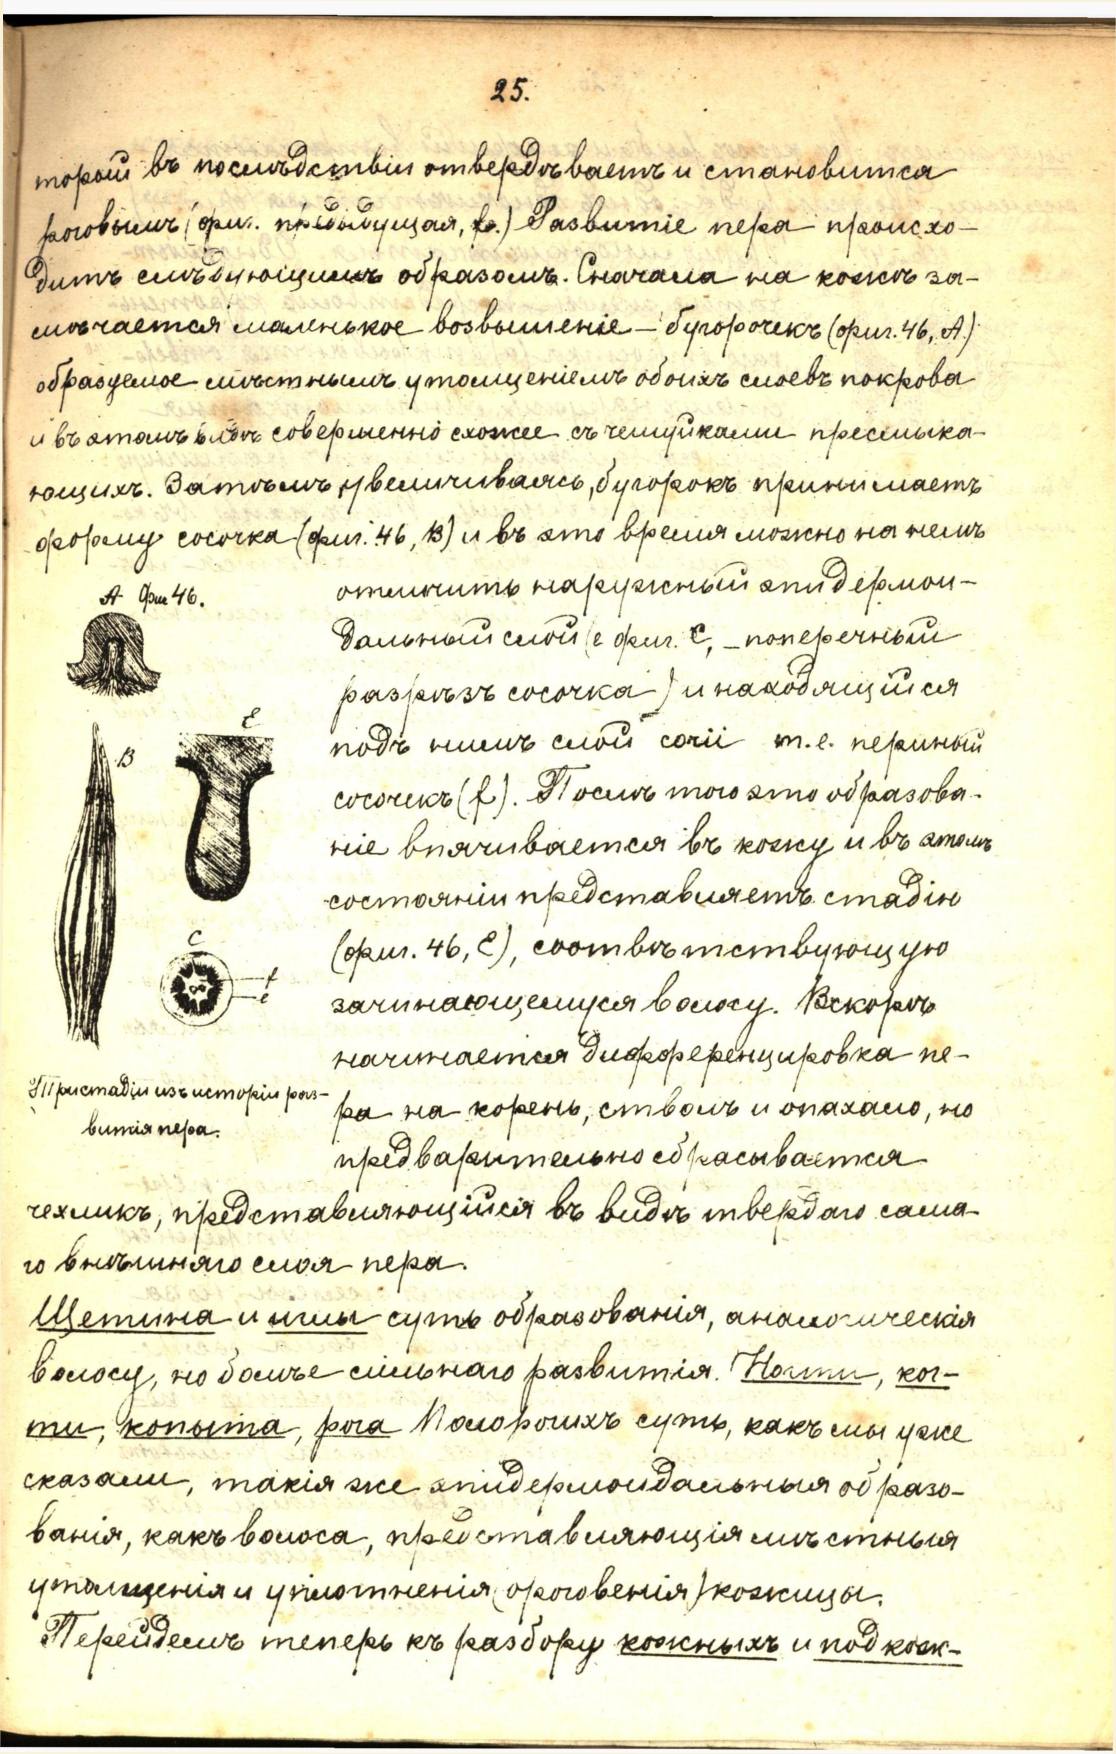 25.
торый въ послѣдствіи отвердѣваетъ и становится
роговымъ (фиг. предыдущая, f.) Развитіе пера происхо-
дитъ слѣдующимъ образомъ. Сначала на кожѣ за-
мѣчается маленькое возвышеніе – бугорочекъ (фиг. 46, А.)
образуемое мѣстнымъ утолщеніемъ обоихъ слоевъ покрова
и въ этомъ видѣ совершенно схожее съ чешуйками пресмыка-
ющихъ. Затѣмъ, увеличиваясь, бугорокъ принимаетъ
форму сосочка (фиг. 46, В) и въ это время можно на немъ
отличить наружный эпидермои-
дальный слой (е фиг. С, – поперечный
разрѣзъ сосочка) и находящійся
подъ нимъ слой corii т.е. перяный
сосочекъ (f). Послѣ того это образова-
ніе впячивается въ кожу и въ этомъ
состояніи представляетъ стадію
(фиг. 46, Е), соотвѣтствующую
зачинающемуся волосу. Вскорѣ
начинается дифференцировка пе-
ра на корень, стволъ и опахало, но
предварительно сбрасывается
А Фиг 46.
Е
В
С
f
е
Три стадіи изъ исторіи раз-
витія пера.
чехликъ, представляющійся въ видѣ твердаго сама-
го внѣшняго слоя пера.
Щетина и иглы суть образованія, аналогическія
волосу, но болѣе сильнаго развитія. Ногти, ког-
ти, копыта, рога Полорогихъ суть, какъ мы уже
сказали, такія же эпидермоидальныя образо-
ванія, какъ волоса, представляющія мѣстныя
утолщенія и уплотненія (ороговенія) кожицы.
Перейдемъ теперь къ разбору кожныхъ и подкож-